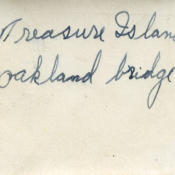 Treasure Islan
oakland bridge